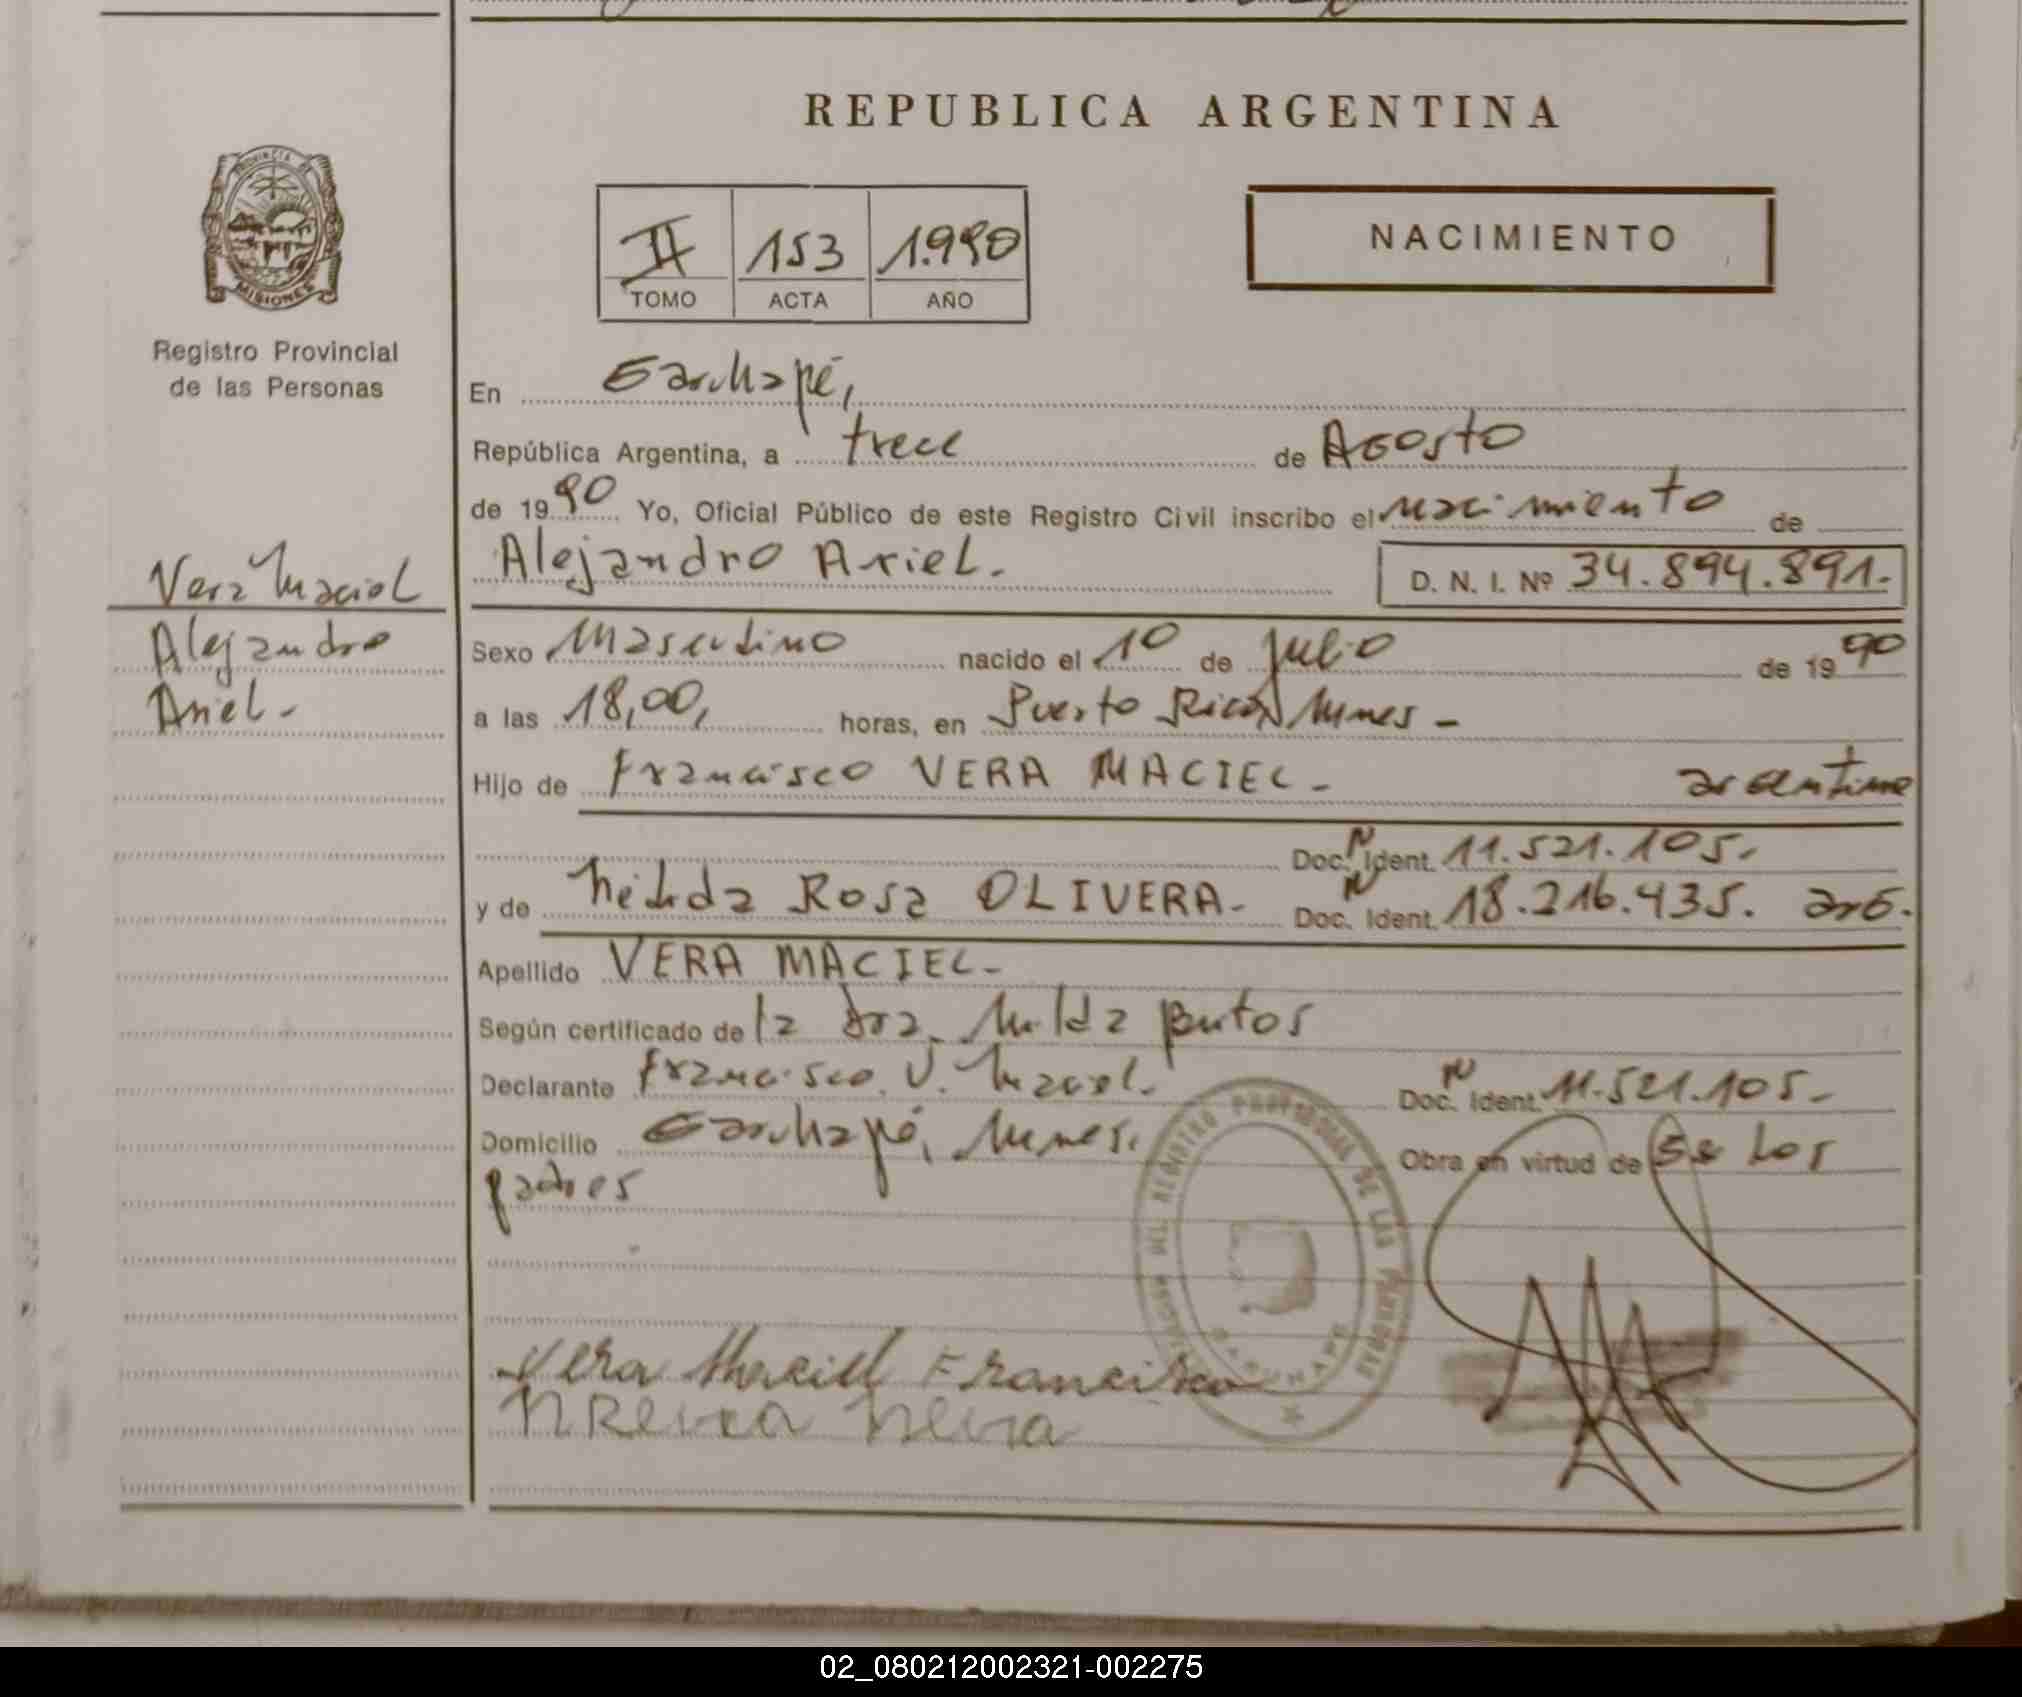 REPUBLICA ARGENTINA
PROVINCIA DE
MISIONES
Registro Provincial
de las Personas
II 153 1.990
TOMO ACTA AÑO
NACIMIENTO
En Garuhapé,
República Argentina, a trece de Agosto
de 1990 Yo, Oficial Público de este Registro Civil inscribo el nacimiento de
Alejandro Ariel. D. N. I. Nº 34.894.891.
Vera Maciel
Alejandro
Ariel-
Sexo Masculino nacido el 10 de Julio de 1990
a las 18,00, horas, en Puerto Rico, Mnes -
Hijo de Francisco VERA MACIEL - argentino
Doc. N Ident. 11.521.105.
y de Nélida Rosa OLIVERA- Doc. N Ident. 18.216.435. arg.
Apellido VERA MACIEL-
Según certificado de la Dra. Milda
Declarante Francisco V. Maciel. Doc. N Ident. 11.521.105-
Domicilio Garuhapé, Mnes. Obra en virtud de Los
padres
DEL REGISTRO PROVINCIAL DE LAS PERSONAS
GARUHAPE
Vera Maciel Francisco
02_080212002321-002275